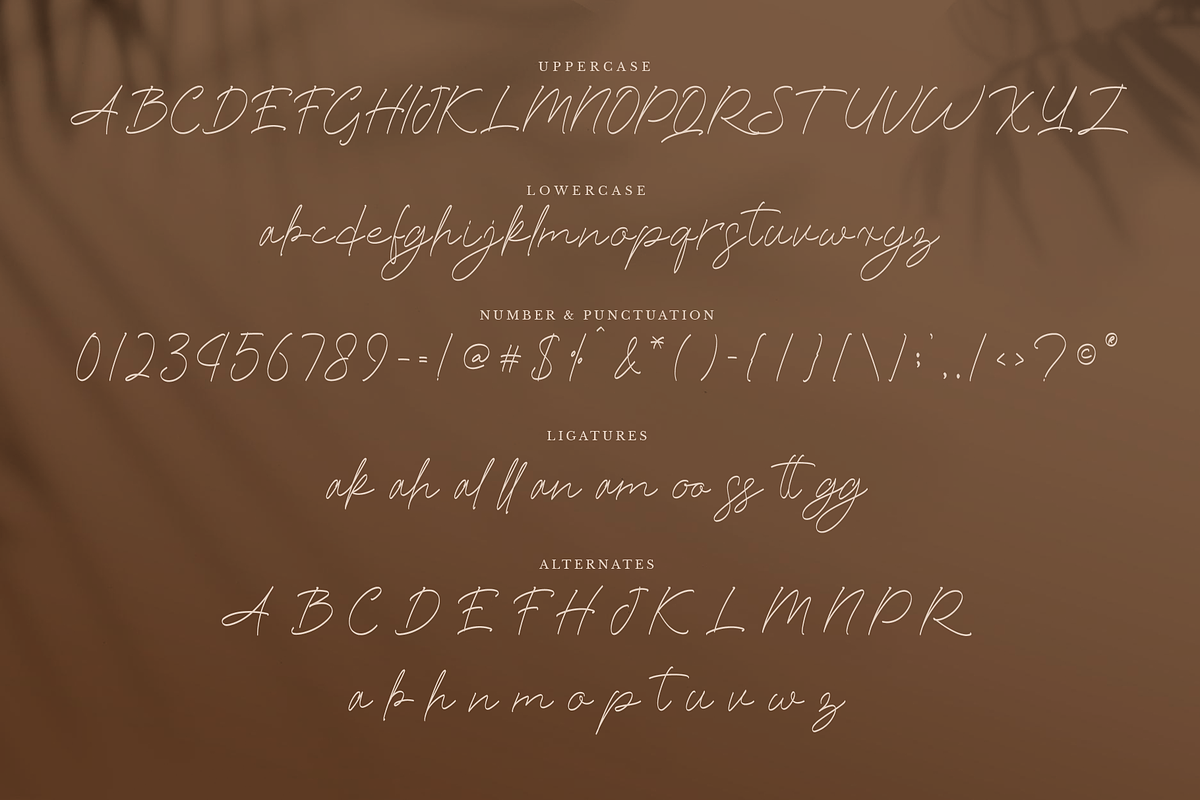 UPPERCASE
ABCDEFGHIJKLMNOPQRSTUVWXYZ
LOWERCASE
abcdefghijklmnopqrstuvwxyz
NUMBER & PUNCTUATION
0123456789-=!@#$%^&*()-{|}[\];',./<>?©®
LIGATURES
ak ah al ll an am oo ss tt gg
ALTERNATES
A B C D E F H J K L M N P R
a b h n m o p t u v w z